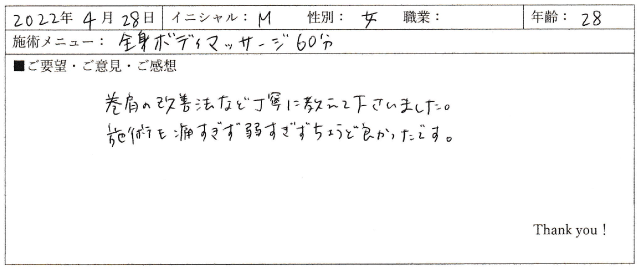 2022年 4月 28日 イニシャル： M 性別： 女 職業： 年齢： 28
施術メニュー： 全身ボディマッサージ 60分
■ご要望・ご意見・ご感想
巻肩の改善法など丁寧に教えて下さいました。
施術も痛すぎず弱すぎずちょうど良かったです。
Thank you！